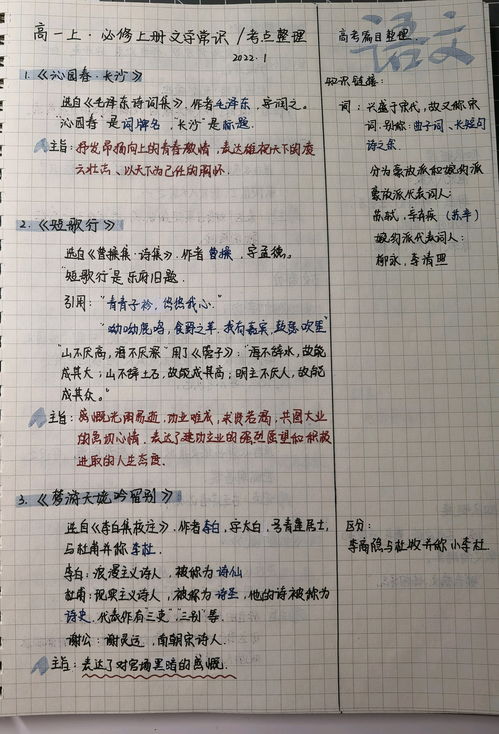 高一上·必修上册文学常识/考点整理
2022.1
1.《沁园春·长沙》
选自《毛泽东诗词集》,作者毛泽东,字润之。
"沁园春"是词牌名,"长沙"是标题.
主旨:抒发昂扬向上的青春激情,表达雄视天下的凌
云壮志、以天下为己任的胸怀.
2.《短歌行》
选自《曹操集·诗集》.作者曹操,字孟德。
"短歌行"是乐府旧题.
引用:"青青子衿,悠悠我心."
"呦呦鹿鸣,食野之苹,我有嘉宾,鼓瑟吹笙"
"山不厌高,海不厌深"用了《管子》:"海不辞水,故能
成其大;山不辞土石,故能成其高;明主不厌人,故能
成其众。"
主旨:感慨光阴易逝,功业难成,求贤若渴,共图大业
的急切心情.表达了建功立业的强烈愿望和积极
进取的人生态度.
3.《梦游天姥吟留别》
选自《李白集校注》.作者李白,字太白,号青莲居士,
与杜甫并称李杜.
李白:浪漫主义诗人,被称为诗仙
杜甫:现实主义诗人,被称为诗圣,他的诗被称为
诗史.代表作有"三吏""三别"等.
谢公:谢灵运,南朝宋诗人.
主旨:表达了对官场黑暗的感慨.
语文
高考篇目整理.
知识链接:
词:兴盛于宋代,故又称宋
词.别称:曲子词、长短句
诗之余
分为豪放派和婉约派
豪放派代表词人:
苏轼,辛弃疾(苏辛)
婉约派代表词人:
柳永,李清照
区分:
李商隐与杜牧并称小李杜.